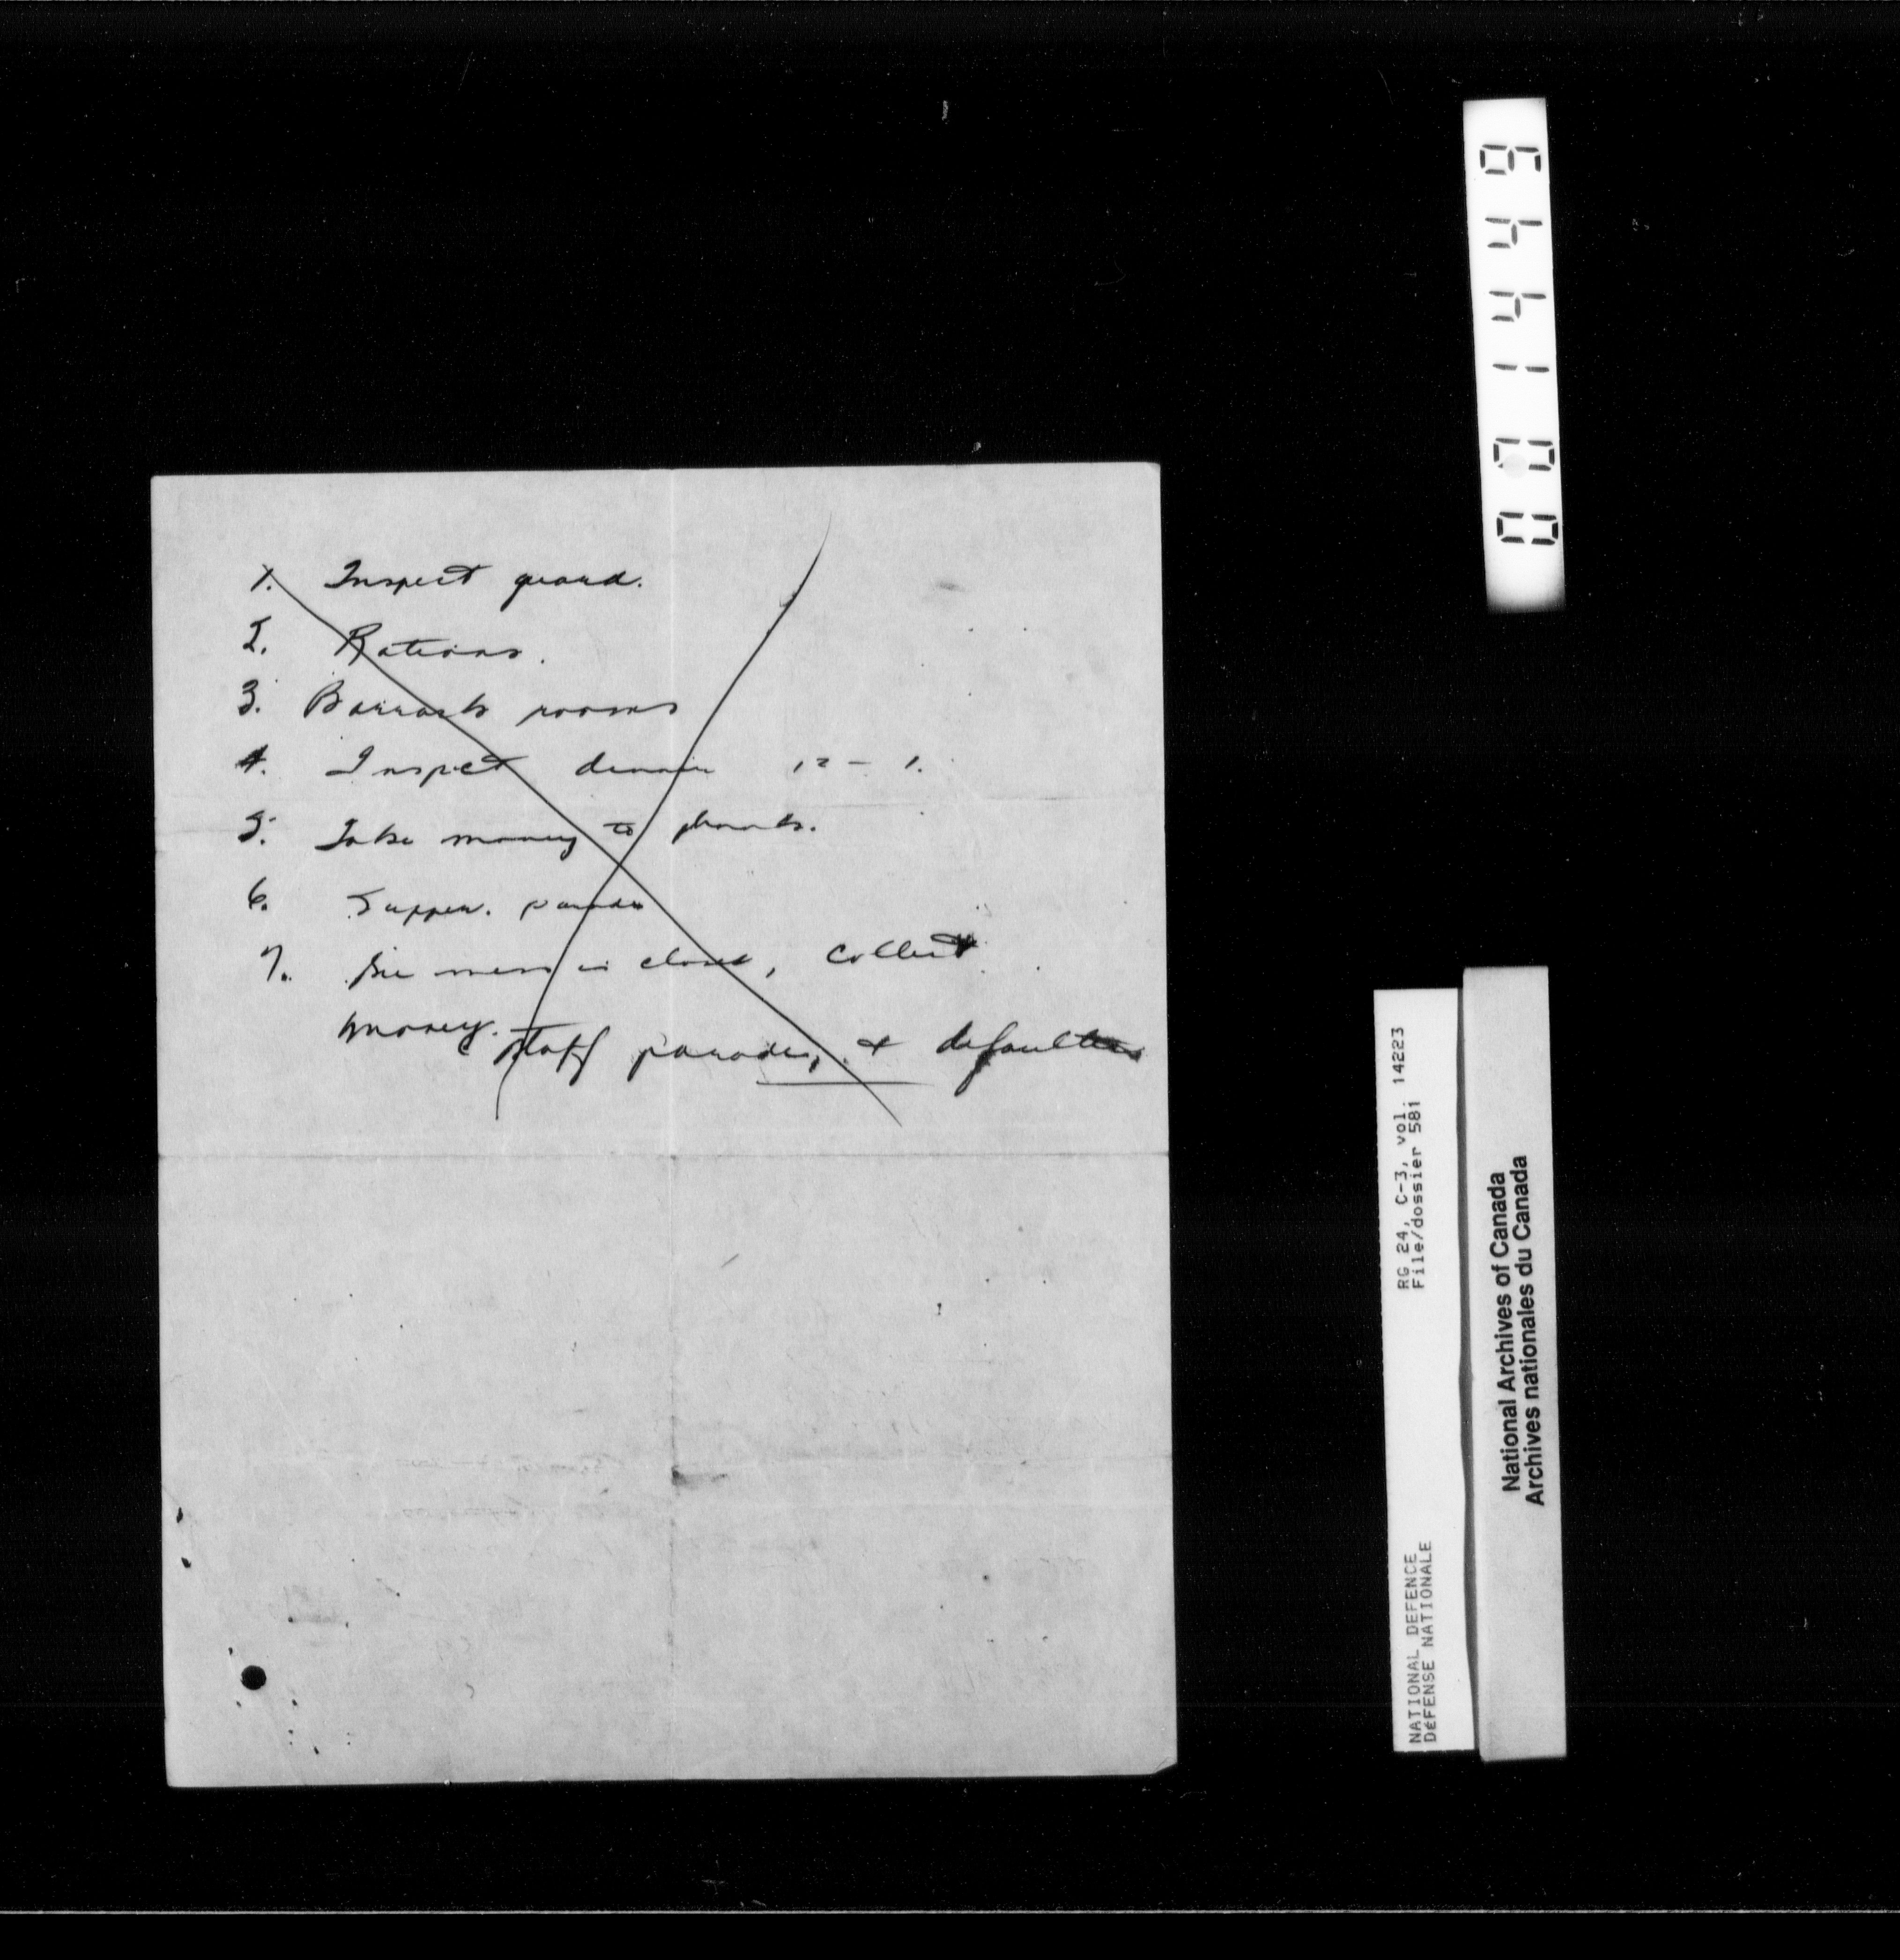 1. Inspect guard.
2. Rations.
3. Barracks rooms
4. Inspect dinner 12 - 1.
5. Take money to
6. Supper. parade
7. See mess is closed, Collect
money. Staff parades, & defaulters
001449
RG 24, C-3, vol. 14223
File/dossier 581
NATIONAL DEFENCE
DÉFENSE NATIONALE
National Archives of Canada
Archives nationales du Canada